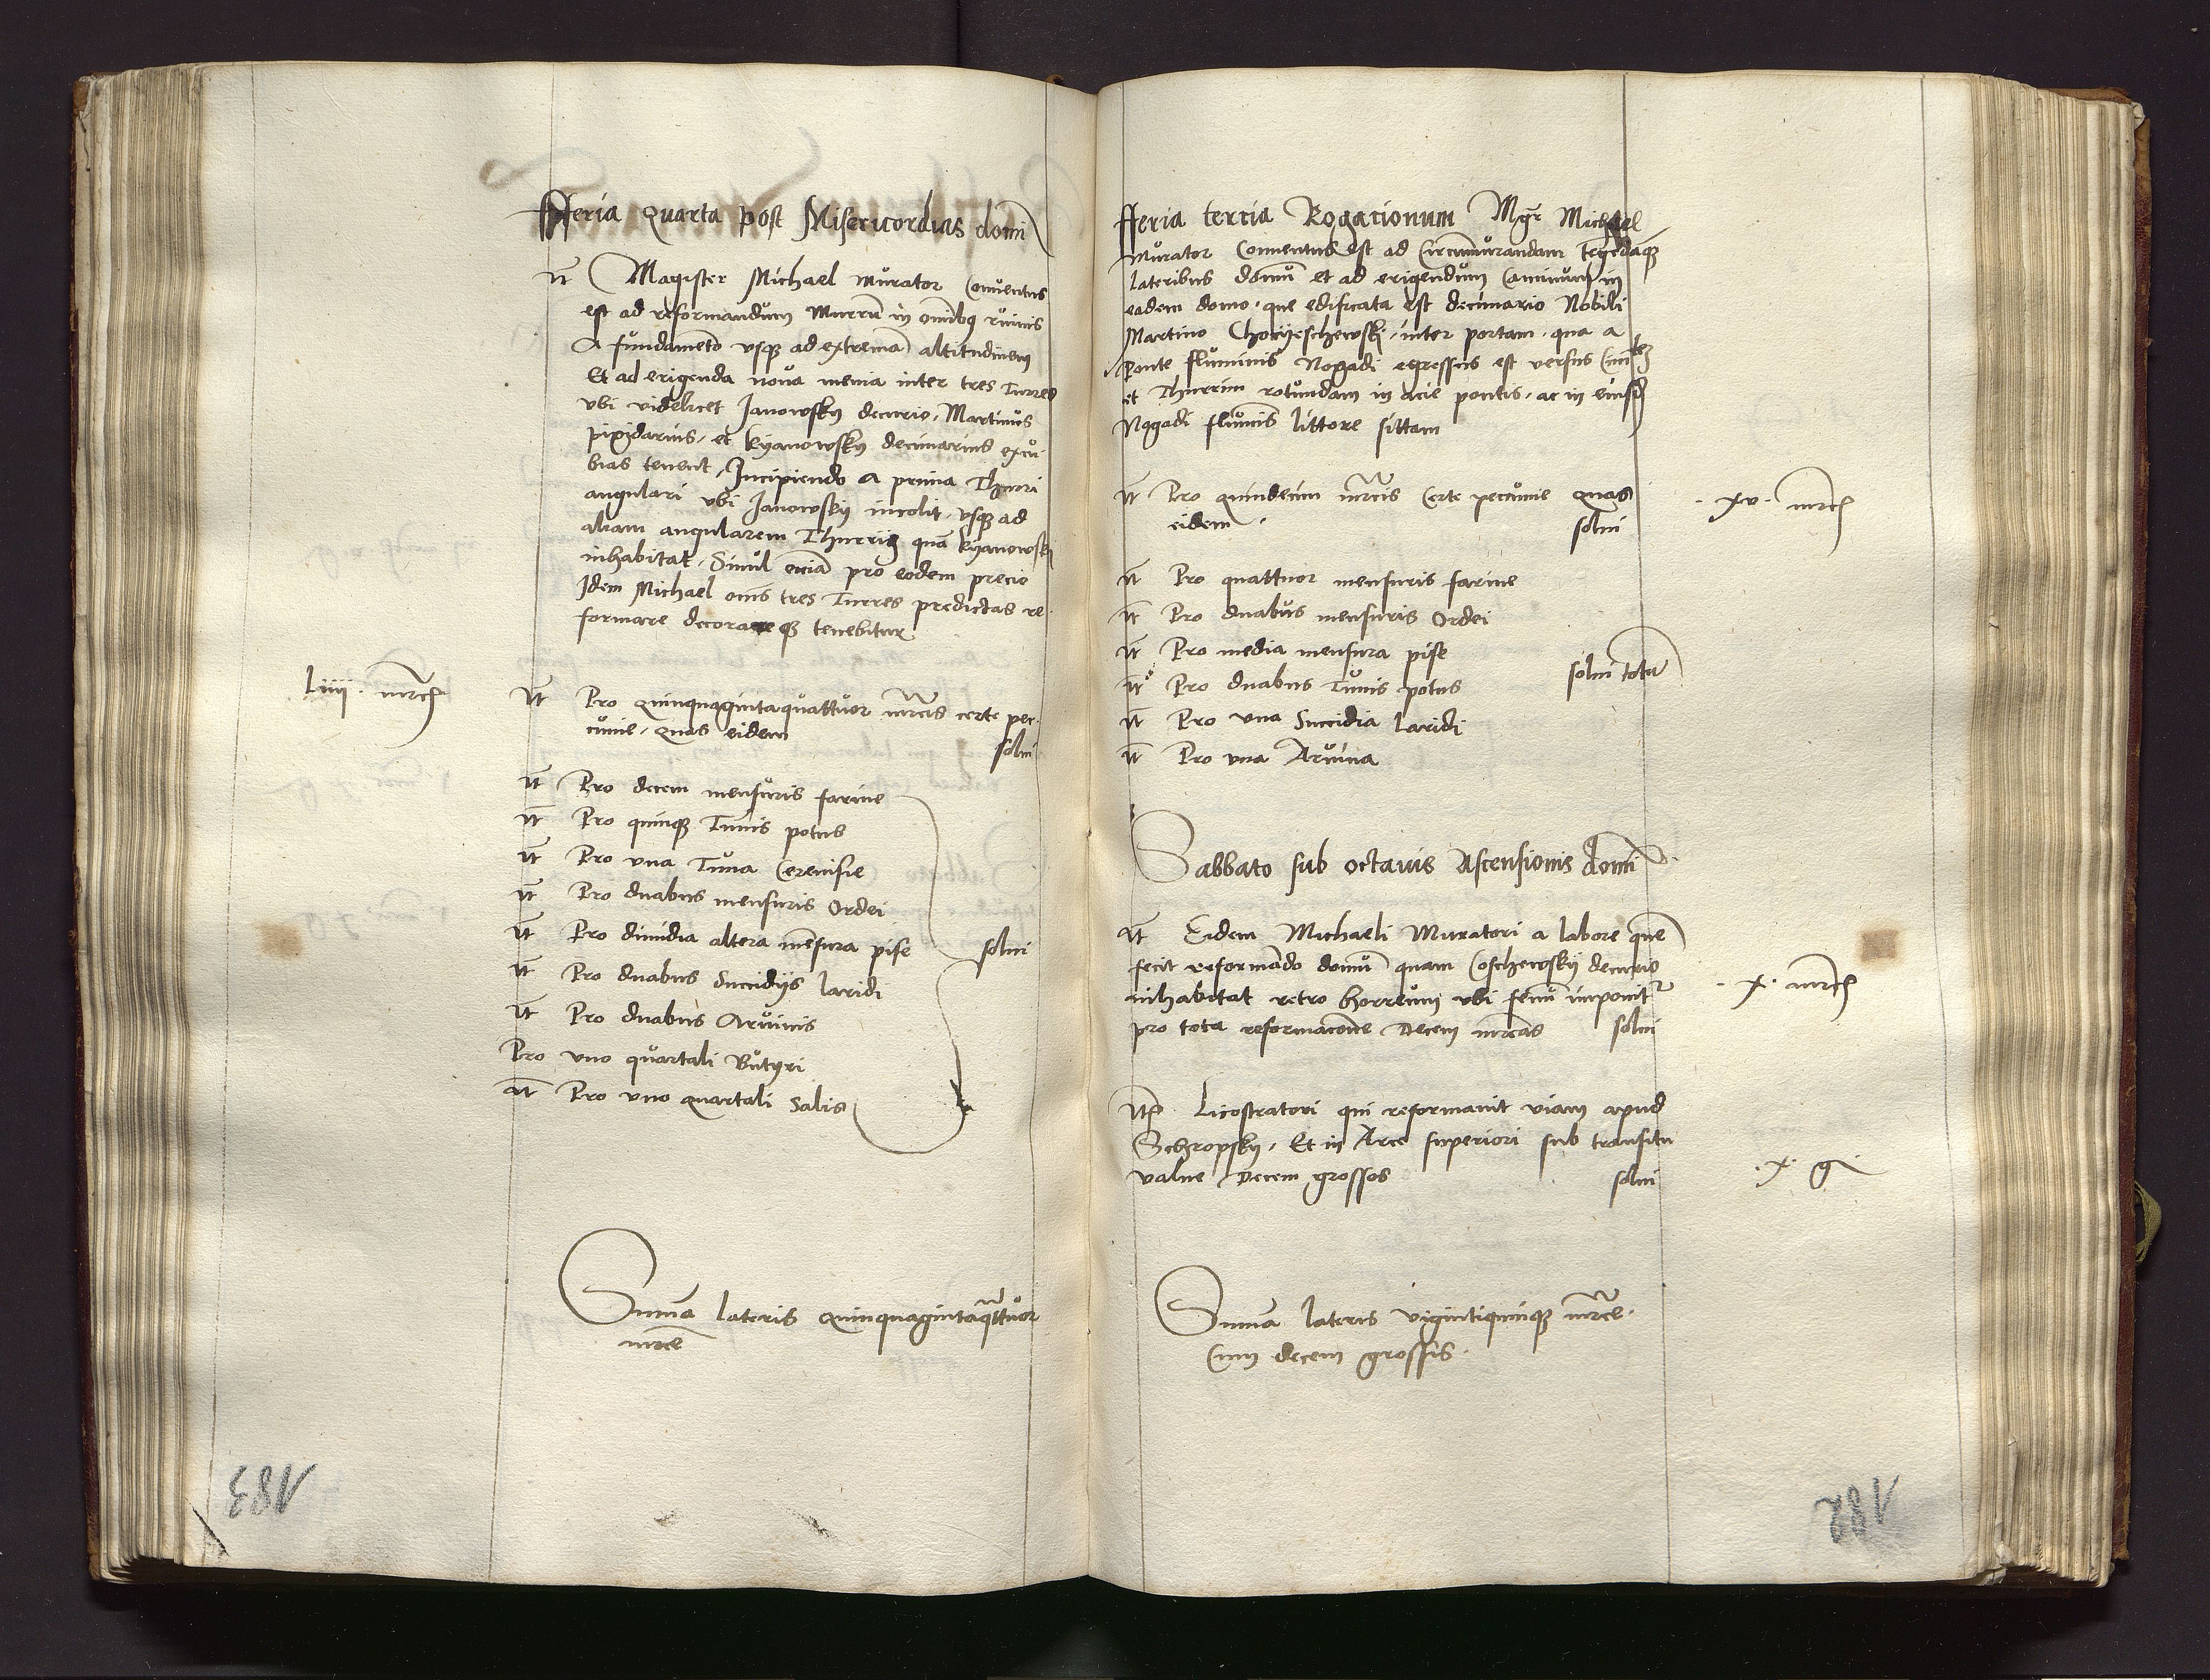 fferia quarta post Misericordias domi
It Magister Michael murator Conuentus
est ad reformandum Murru in omibq ruinis
A fundameto vsqz ad extrema altitudinem
Et ad erigenda noua menia inter tres Turres
vbi videlicet Janowsky decurio, Martinus
pixidarius, et kyanowsky decimarius excu-
bias tenent, Incipiendo a prima Thurri
angulari vbi Janowsky incolit, vsqz ad
aliam angularem Thurrim qua kyanowski
inhabitat, Simul enia pro eodem precio
Idem Michael oms tres Turres predictas re-
formare decorareqz tenebitur
Liiij. mrc
It Pro quinquagintaquattuor mrcis certe pec-
cunie, quas eidem
solui
It Pro decem mensuris farine
It Pro quinqz Tunis potus
It Pro vna Tuna Cereuisie
It Pro duabus mensuris Ordei
It Pro dimidia altera mesura pise solui
It Pro duabus Succidijs laridi
It Pro duabus Aruinis
Pro vno quartali Butyri
It Pro vno quartali Salis
Suma lateris quinquagintaqttuor
mrce
183
fferia tertia Rogacionum Mgr Michael
Murator Conuentus est ad Circumurandam tegedaqz
lateribus domu et ad erigendum Caminum in
eadem domo, que edificata est decimario Nobili
Martino Choryeschewski, inter portam, qua a
ponte fluminis Nogadi egressus est versus
et Thurrim rotundam in acie pontis, ac in eiusd
Nogadi flumis littore sittam
It Pro quindecim mrcis Certe peccunie quas
eidem.
solui
.xv. mrc
It Pro quattuor mensuris farine
It Pro duabus mensuris Ordei
It Pro media mensura pise
It Pro duabus Tunis potus
solui totu
It Pro vna Succidia laridi
It Pro vna Aruina
Sabbato sub octauis Ascensionis domi
It Eidem Michaeli Muratori a labore que
fecit reformado domu quam Coschewsky decurio
inhabitat retro horreum vbi fenu imponit
pro tota reformacone Decem mrcas solui
.x. mrc
It Licostratori qui reformauit viam apud
Schropsky, Et in Arce superiori sub transitu
value Decem grossos solui
.x. g
Suma lateris vigintiquinqz mrce.
Cum decem grossis.
182